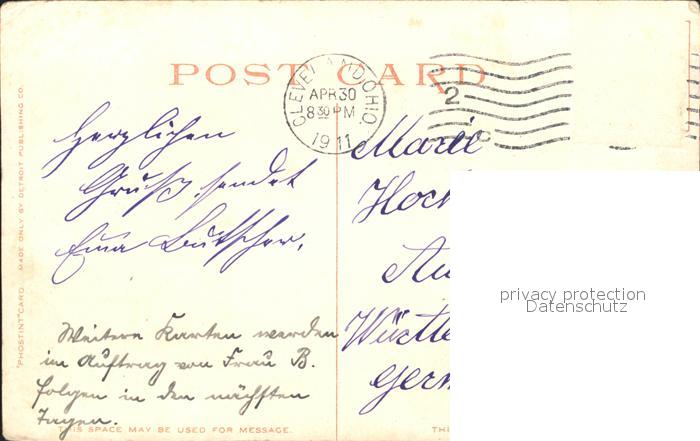 POST CARD
CLEVELAND OHIO
APR 30
8 30 PM
1911
2
Herzlichen
Gruß sendet
Emma Butscher.
Weitere Karten werden
im Auftrag von Frau B.
folgen in den nächsten
Tagen.
Marie
Württe
Germ
privacy protection
Datenschutz
"PHOSTINT" CARD. MADE ONLY BY DETROIT PUBLISHING CO.
THIS SPACE MAY BE USED FOR MESSAGE.